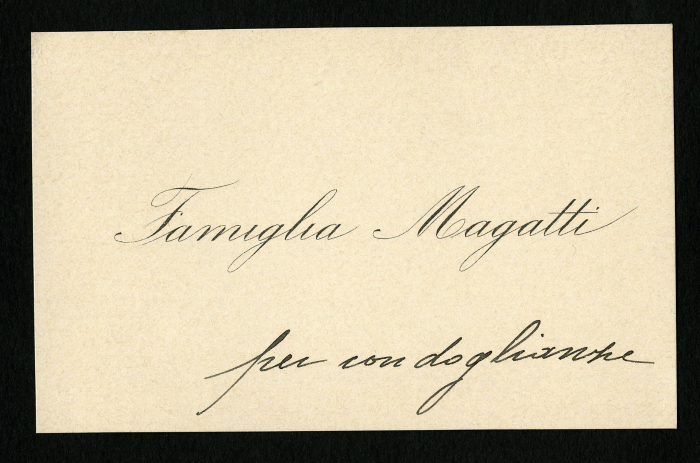 Famiglia Magatti
per condoglianze